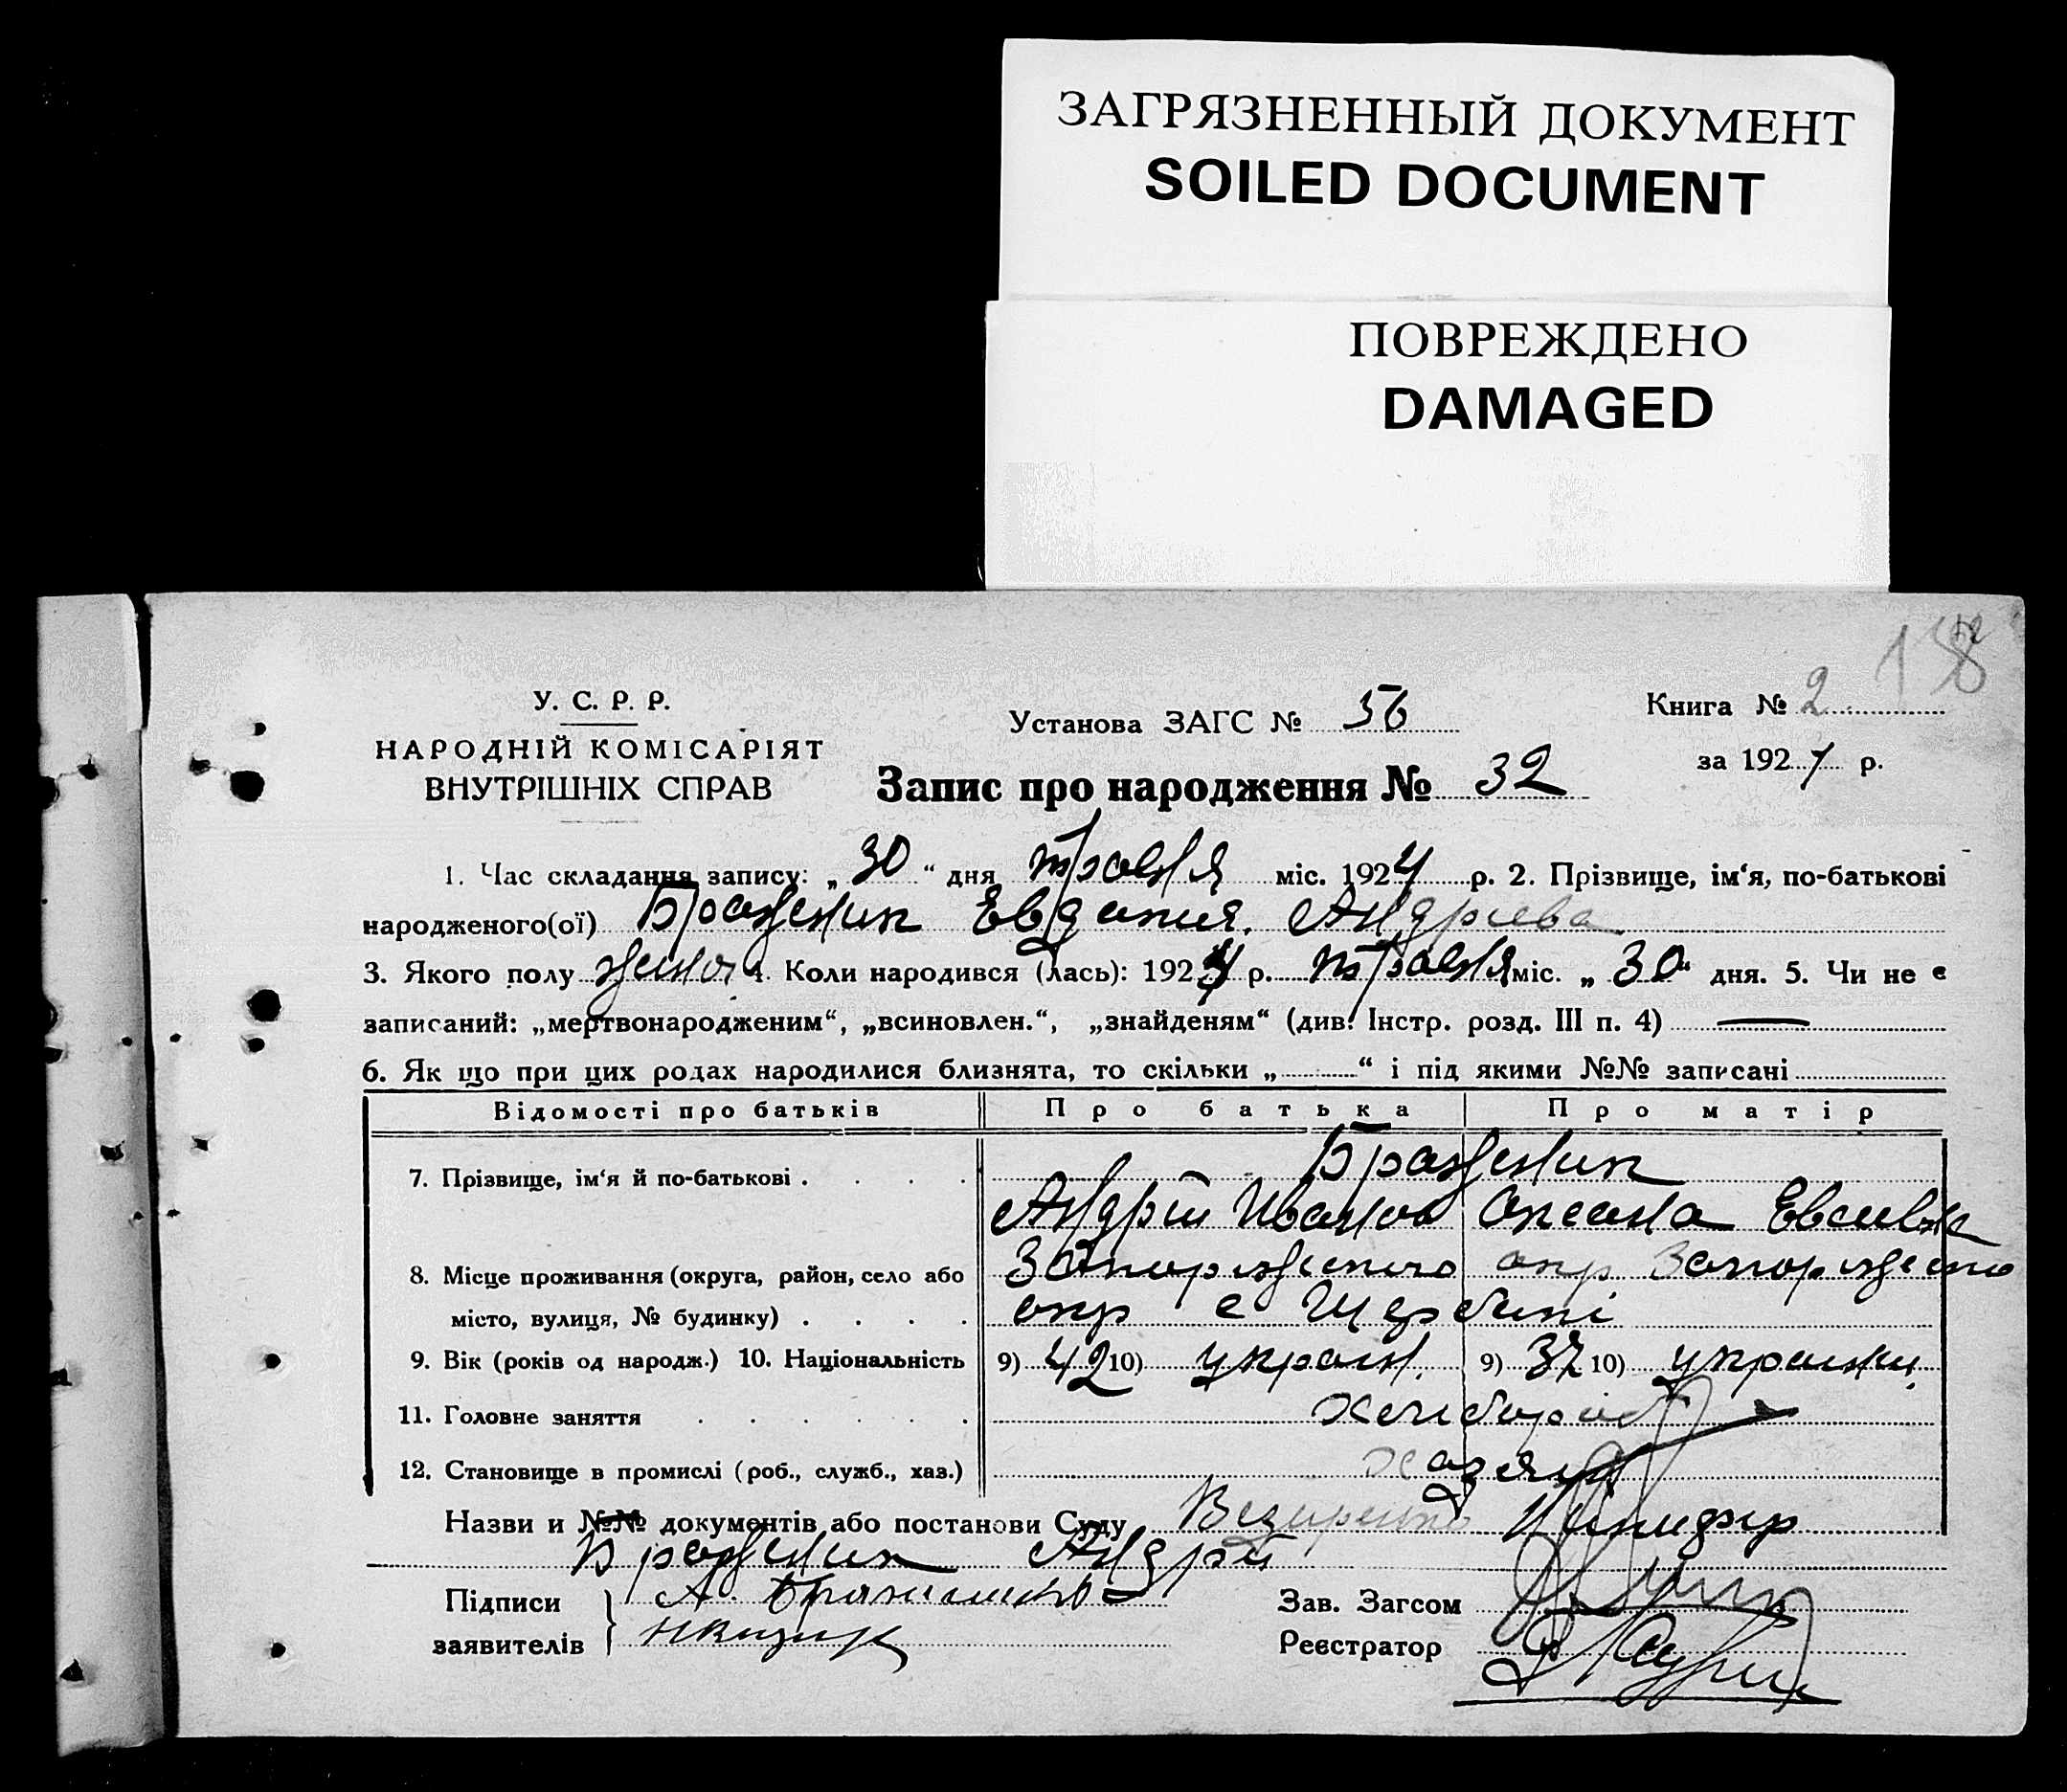 ЗАГРЯЗНЕННЫЙ ДОКУМЕНТ
SOILED DOCUMENT
ПОВРЕЖДЕНО
DAMAGED
У. С. Р. Р.
НАРОДНІЙ КОМІСАРІЯТ
ВНУТРІШНІХ СПРАВ
Установа ЗАГС № 56
Книга № 2
за 1927 р.
Запис про народження № 32
1. Час складання запису: „30“ дня травня міс. 192 р. 2. Прізвище, ім‘я, по-батькові
народженого(ої) Бражник Андриева
3. Якого полу жиноч 4. Коли народився (лась): 192 р. травня міс. „30“ дня. 5. Чи не є
записаний: „мертвонародженим“, „всиновлен.“, „знайденям“ (див. Інстр. розд. III п. 4) —
6. Як що при цих родах народилися близнята, то скільки „ “ і під якими №№ записані
Відомості про батьків Про батька Про матір
7. Прізвище, ім‘я й по-батькові . . . . Бражник
Андрій Иванов Оксана
8. Місце проживання (округа, район, село або окр
місто, вулиця, № будинку) . . . . окр с
9. Вік (років од народж.) 10. Національність 9) 42 10) украин. 9) 37 10) украинк.
11. Головне заняття . . . . . . Хлибороб
12. Становище в промислі (роб., служб., хаз.) хазяин
Назви и №№ документів або постанови Суду
Бражник Андрій
Підписи А.
заявителів
Зав. Загсом
Реєстратор